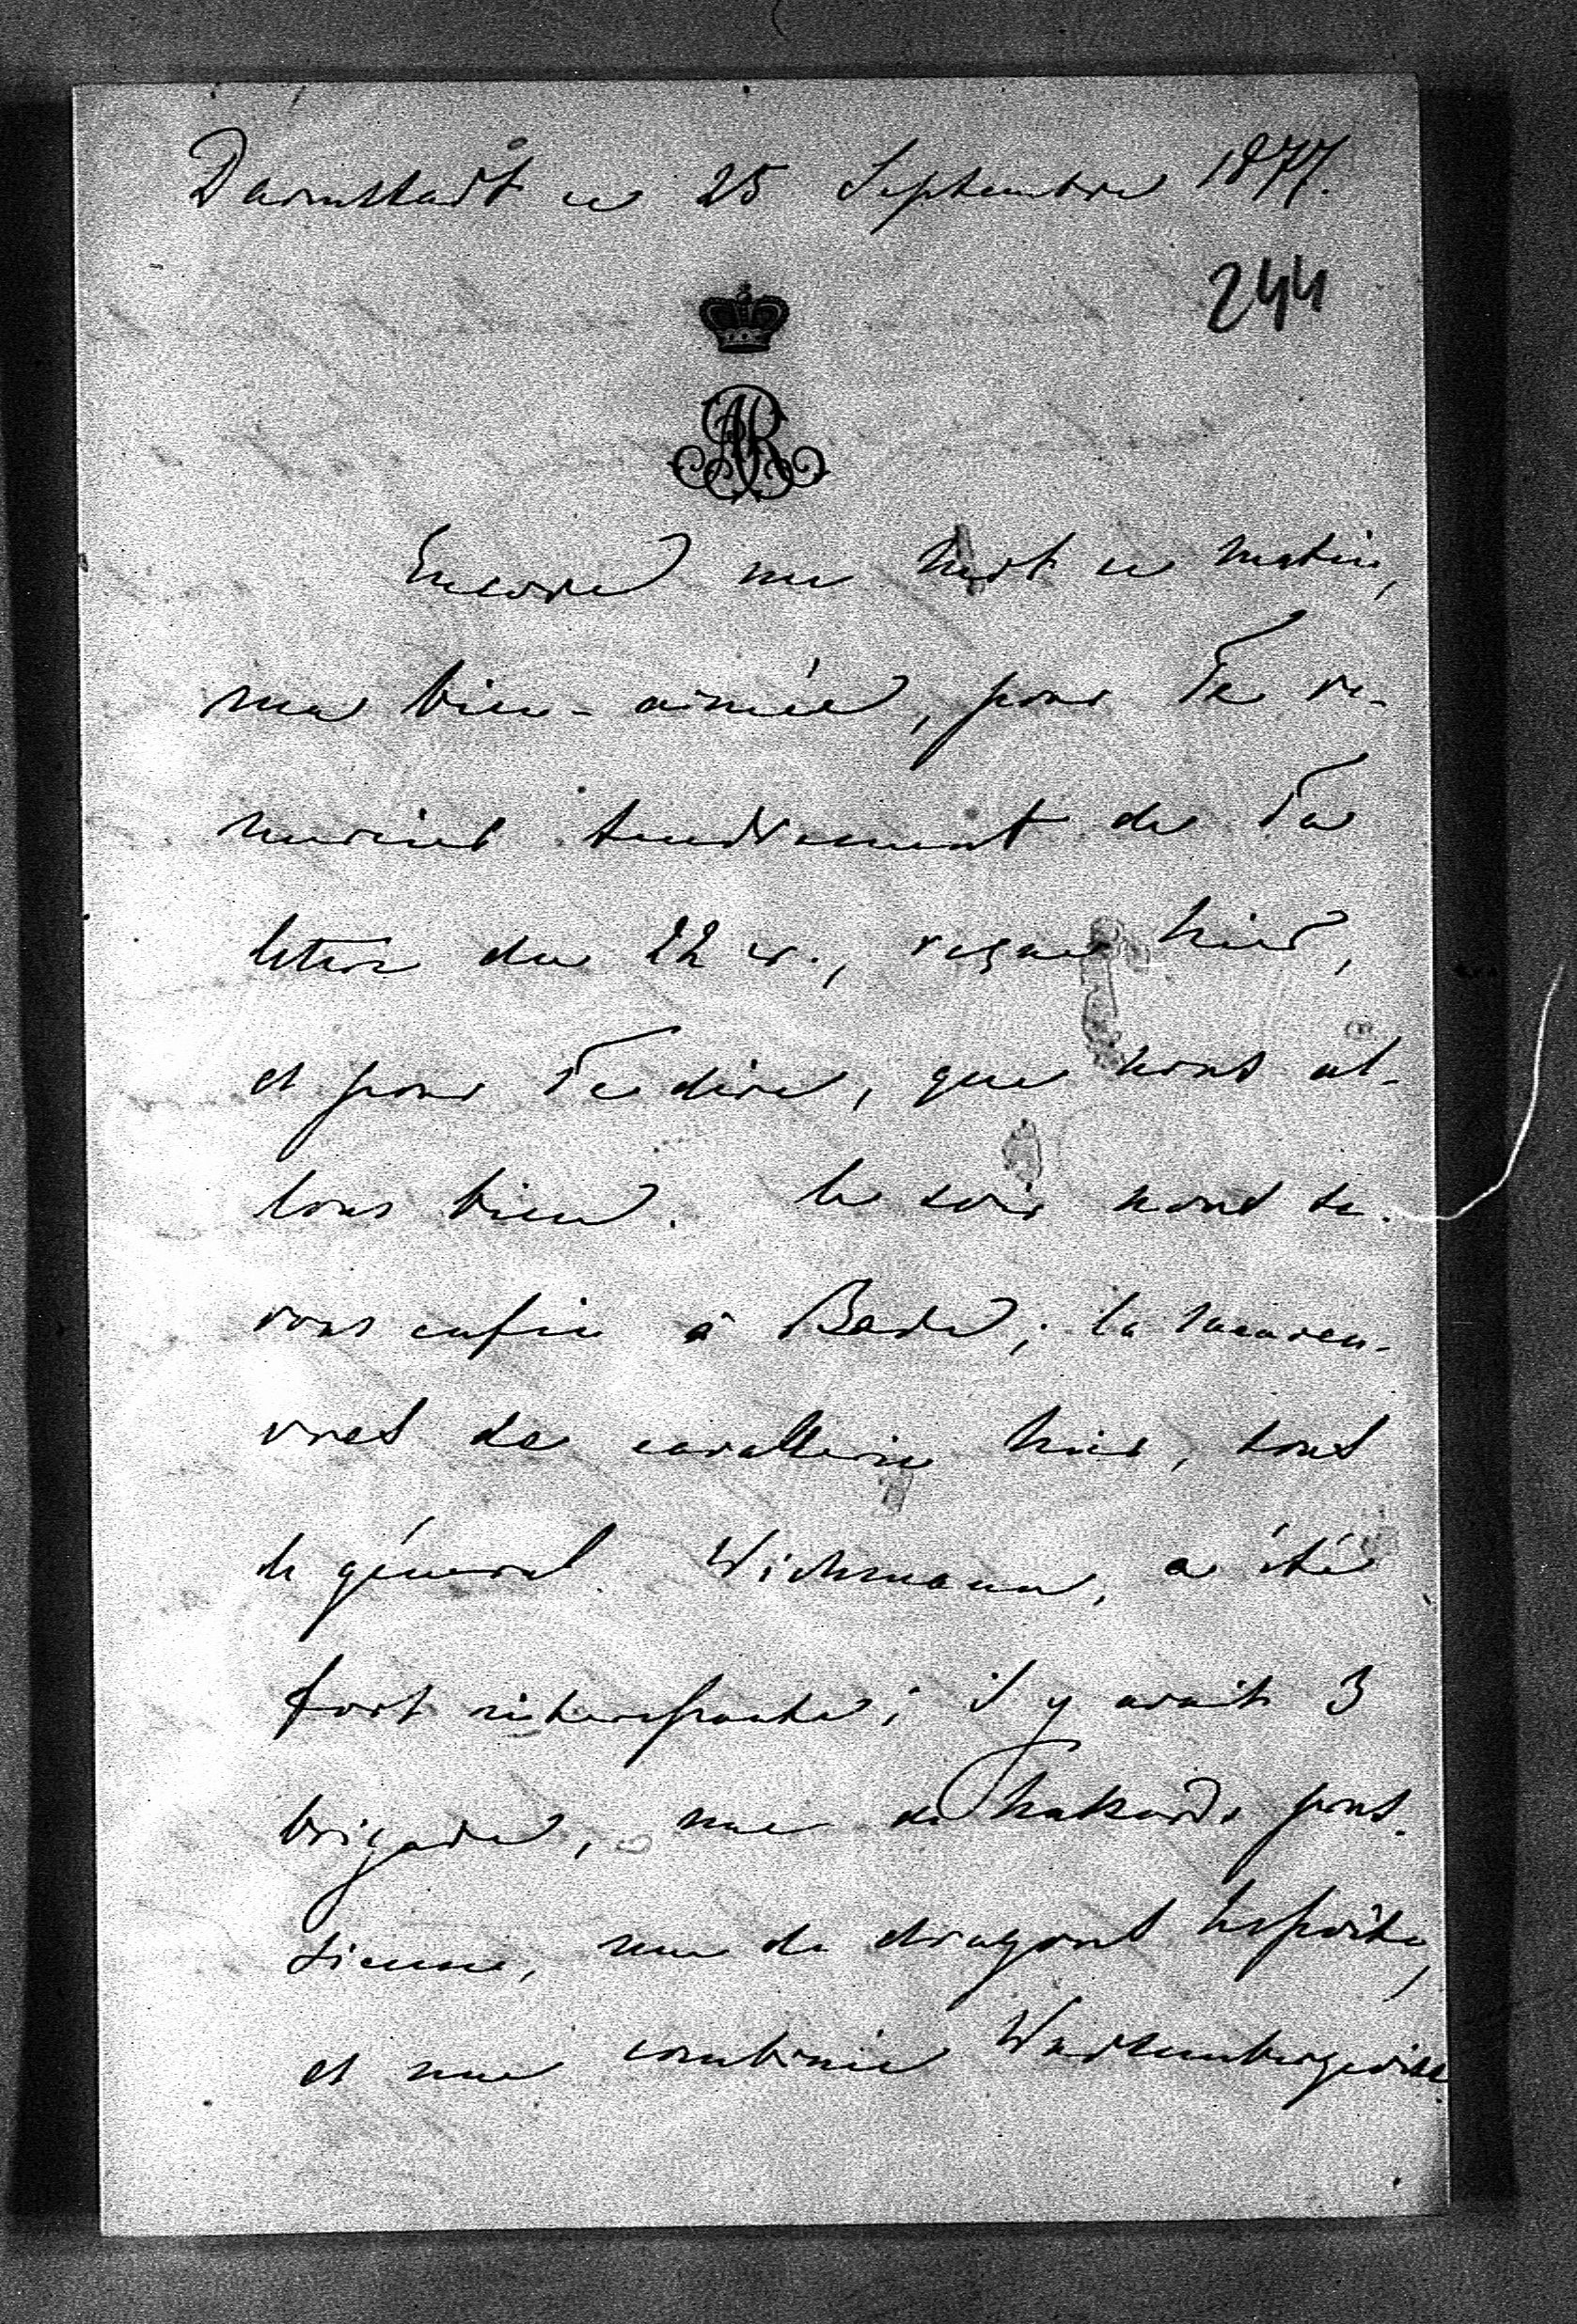 Darmstadt ce 25 Septembre 1877.
244
AR
Encore un mot ce matin,
ma bien-aimée, pour Te re-
mercier tendrement de Ta
lettre du 22 cr., reçue hier,
et pour Te dire, que nous al-
lons bien. Ce soir nous se-
rons enfin à Bade; la manœu-
vres de cavallerie hier, sous
le général Wichmann, a été
fort intéressante; il y avait 3
brigades, une de hussards prus-
sienne, une de dragons hessoise,
et une combinée Wurtembergeoise.